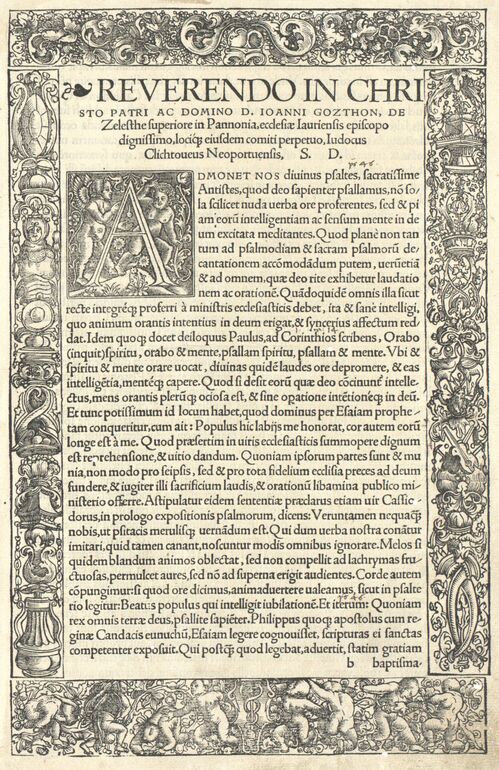 REVERENDO IN CHRI
STO PATRI AC DOMINO D. IOANNI GOZTHON, DE
Zelesthe superiore in Pannonia, ecclesiæ Iauriensis episcopo
dignissimo, lociq́; eiusdem comiti perpetuo, Iudocus
Clichtoueus Neoportuensis, S. D.
ADMONET NOS diuinus psaltes, sacratissime
Antistes, quod deo sapienter psallamus, nō so
la scilicet nuda uerba ore proferentes, sed & pi
am eorū intelligentiam ac sensum mente in de
um excitata meditantes. Quod planè non tan
tum ad psalmodiam & sacram psalmorū de
cantationem accōmodādum putem, uerùetiā
& ad omnem, quæ deo rite exhibetur laudatio
nem ac orationē. Quādoquidē omnis illa sicut
recte integréq́; proferri à ministris ecclesiasticis debet, ita & sanè intelligi,
quo animum orantis intentius in deum erigat, & syncerius affectum red
dat. Idem quoq; docet deiloquus Paulus, ad Corinthios scribens, Orabo
(inquit) spiritu, orabo & mente, psallam spiritu, psallam & mente. Vbi &
spiritu & mente orare uocat, diuinas quidē laudes ore depromere, & eas
intelligētia, mentéq́; capere. Quod si desit eorū quæ deo cōcinunt̄ intelle
ctus, mens orantis plerūq; ociosa est, & sine oratione intētioneq́; in deū.
Et tunc potissimum id locum habet, quod dominus per Esaiam prophe
tam conqueritur, cum ait: Populus hic labijs me honorat, cor autem eorū
longe est à me. Quod præsertim in uiris ecclesiasticis summopere dignum
est reprehensione, & uitio dandum. Quoniam ipsorum partes sunt & mu
nia, non modo pro seipsis, sed & pro tota fidelium ecclisia preces ad deum
fundere, & iugiter illi sacrificium laudis, & orationū libamina publico mi
nisterio offerre. Astipulatur eidem sententiæ præclarus etiam uir Cassio
dorus, in prologo expositionis psalmorum, dicens: Veruntamen nequaq̄
nobis, ut psitacis merulisq́; uernādum est. Qui dum uerba nostra conātur
imitari, quid tamen canant, noscuntur modis omnibus ignorare. Melos si
quidem blandum animos oblectat, sed non compellit ad lachrymas fru
ctuosas, permulcet aures, sed nō ad superna erigit audientes. Corde autem
cōpungimur: si quod ore dicimus, animaduertere ualeamus, sicut in psalte
rio legitur: Beatus populus qui intelligit iubilationē. Et iterum: Quoniam
rex omnis terræ deus, psallite sapiēter. Philippus quoq; apostolus cum re
ginæ Candacis eunuchū, Esaiam legere cognouisset, scripturas ei sanctas
competenter exposuit. Qui postq̄ quod legebat, aduertit, statim gratiam
b baptisma-